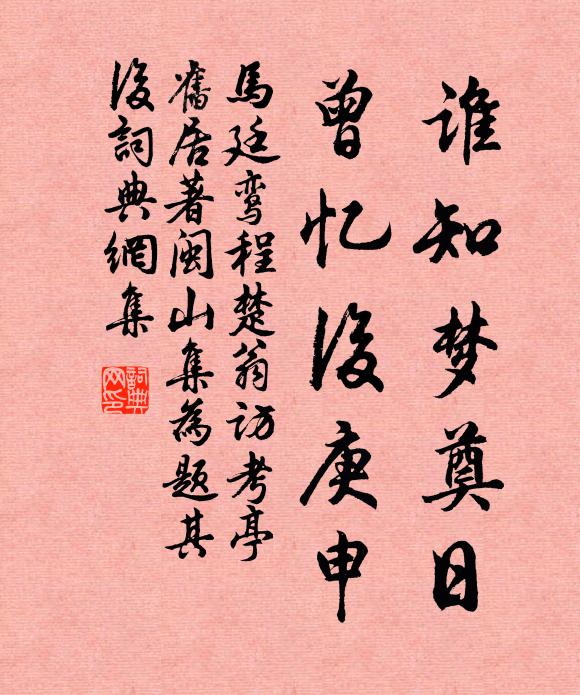 谁知梦奠日
曾忆後庚申
馬廷鸾程楚翁访考亭
舊居著闽山集為题其
後詞典網集
詞典
网印